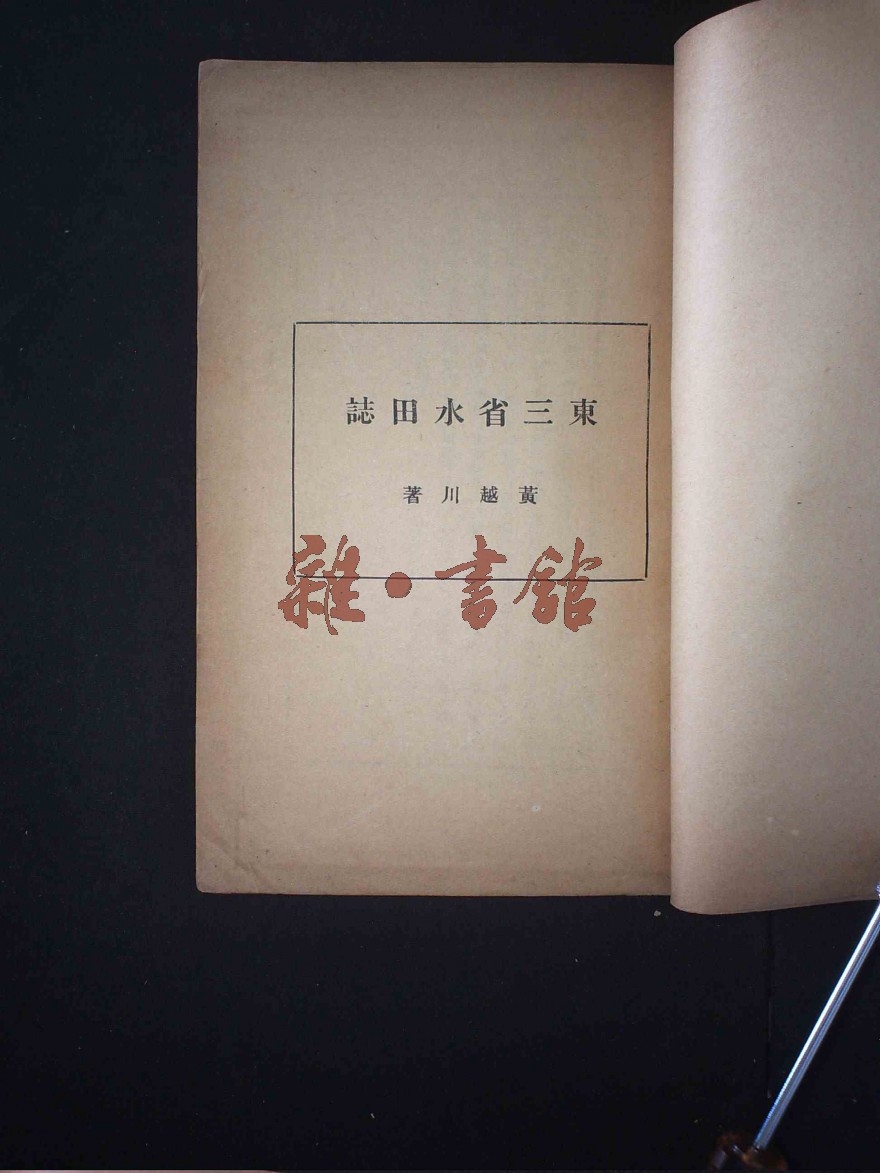 東三省水田誌
黃越川著
雜·書館